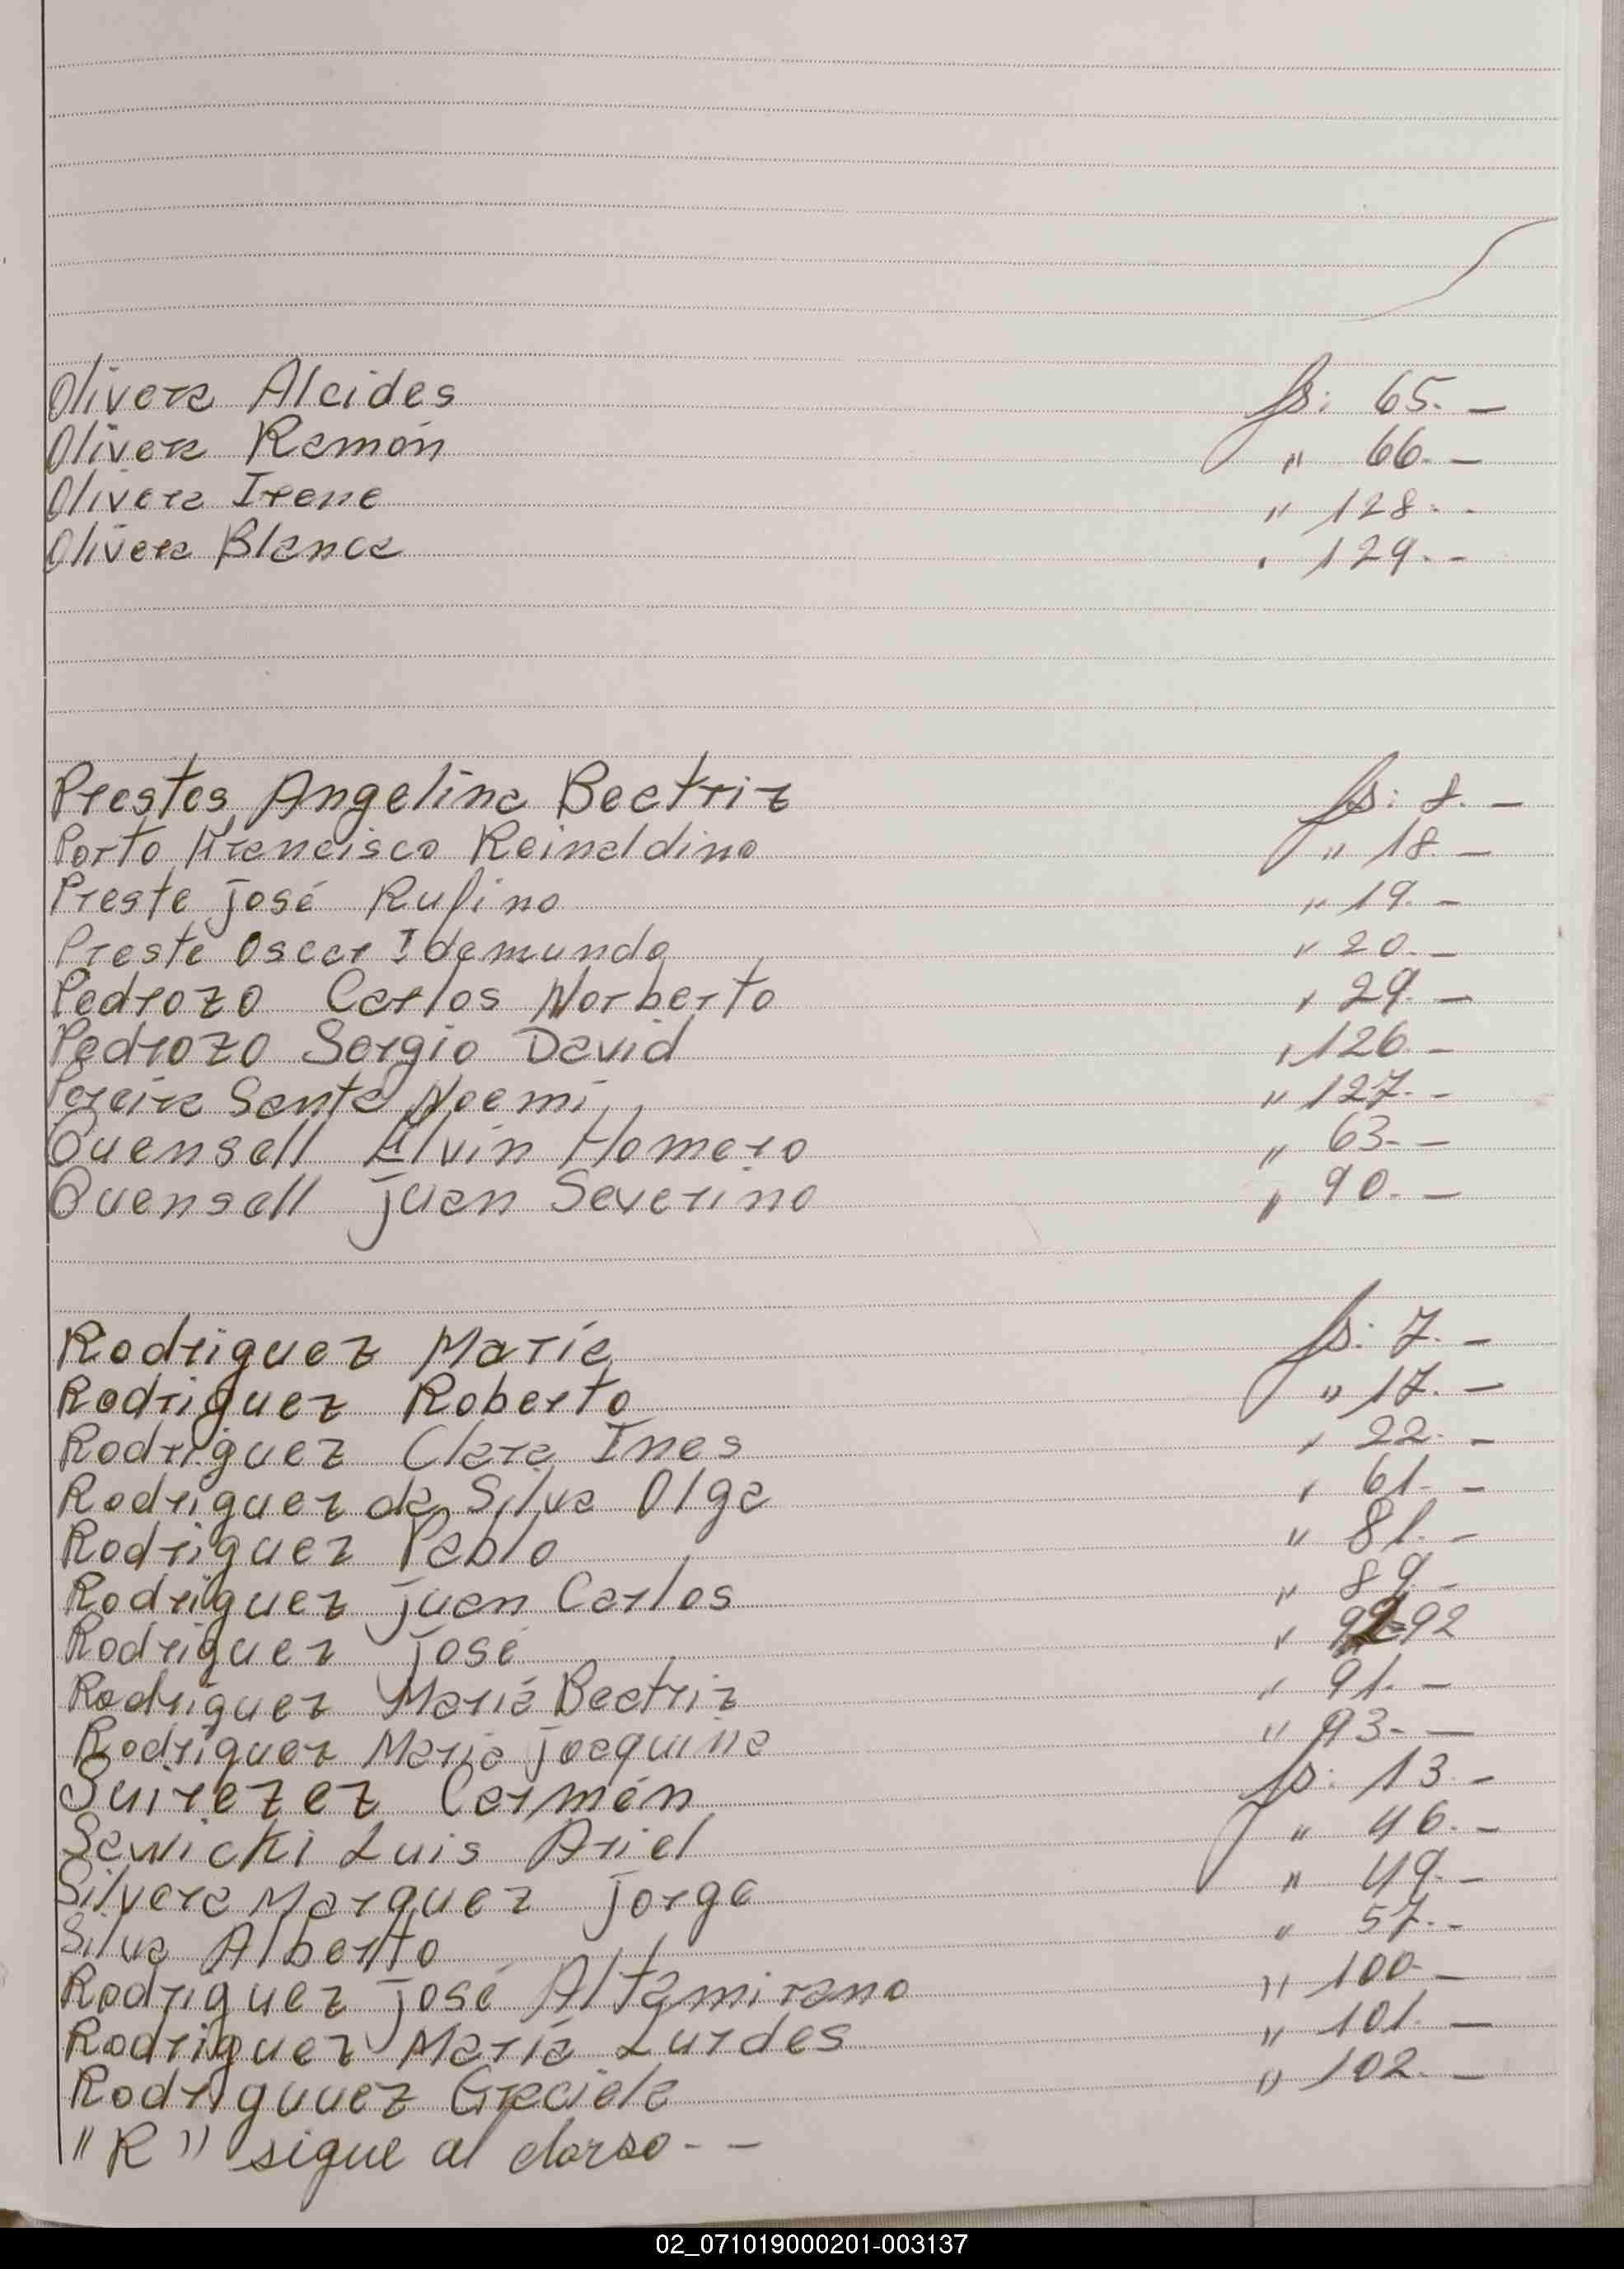 Olivera Alcides fs: 65. —
Olivera Ramón " 66. —
Olivera Irene " 128. -
Olivera Blanca " 129. -
Prestes Angelina Beatriz fs: 8. —
Porto Francisco Reinaldino " 18. —
Preste José Rufino " 19. —
Preste Oscar Idemundo " 20. —
Pedrozo Carlos Norberto " 29. —
Pedrozo Sergio David " 126. —
Pereira Santa Noemi " 127. -
Quensell Elvin Homero " 63. —
Quensell Juan Severino " 90. —
Rodriguez María fs: 7. —
Rodriguez Roberto " 17. —
Rodriguez Clara Ines " 22. —
Rodriguez da Silva Olga " 61. —
Rodriguez Pablo " 81. —
Rodriguez Juan Carlos " 89. —
Rodriguez José " 92
Rodriguez María Beatriz " 91. —
Rodriguez Maria Joaquina " 93. —
Suirezez Carmén fs: 13. —
Sawicki Luis Ariel " 46. —
Silvera Marquez Jorge " 49. —
Silva Alberto " 57. -
Rodriguez José Altamirano " 100. —
Rodriguez María Lurdes " 101. —
Rodriguuez Graciela " 102. —
"R" sigue al dorso - -
02_071019000201-003137